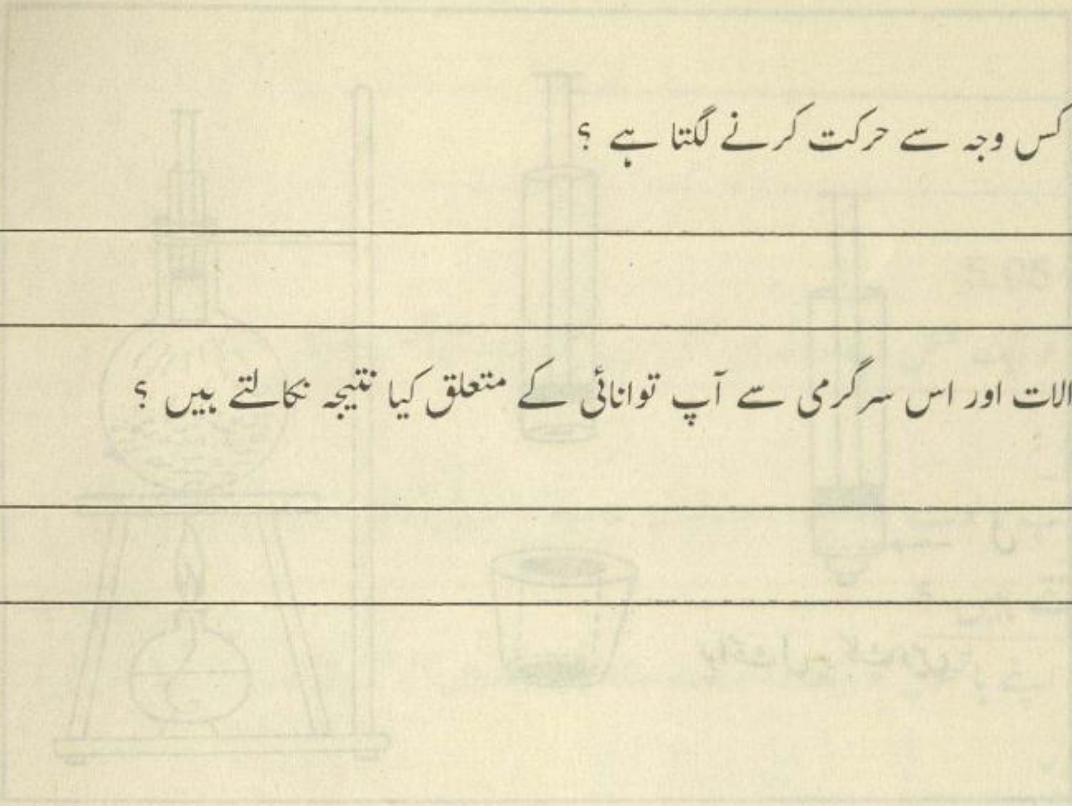 کس وجہ سے حرکت کرنے لگتا ہے ؟
الات اور اس سرگرمی سے آپ توانائی کے متعلق کیا نتیجہ نکالتے ہیں ؟